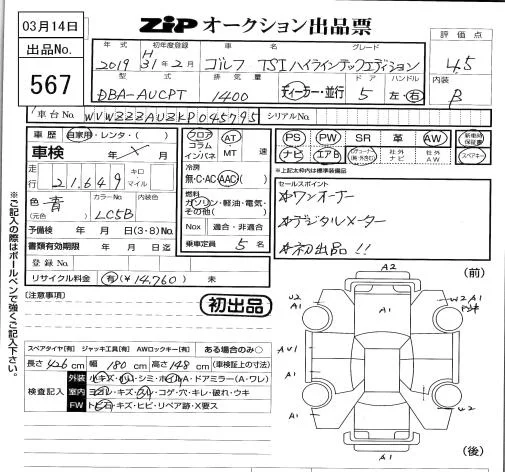 03月14日
出品No.
567
ZIP オークション出品票
評価点
4.5
内装
B
年式 初年度登録 車名 グレード
2019 31年2月 ゴルフ TSI ハイラインテックエディション
型式 排気量 ドア ハンドル
DBA-AUCPT 1400 ディーラー・並行 5 左・右
車台No. WVWZZZAUZKP045795 シリアルNo.
車歴 自家用・レンタ・( )
車検 年 X 月
走行 21,649 キロ マイル
色 青 (元色) カラーNo. LC5B 内装色
予備検 年 月 日(3・8)No.
書類有効期限 年 月 日迄
登録No.
リサイクル料金 有(¥14,760) 未
フロア コラム インパネ AT MT 速
冷房 無・C・AC・AAC
燃料 ガソリン・軽油・電気・その他( )
Nox 適合・非適合
乗車定員 5 名
PS PW SR 革 AW 新車時保証書
ナビ エアB 社外ナビ 社外AW スペアキー
※上記太枠内は標準装備品
セールスポイント
☆ワンオーナー
☆デジタルメーター
☆初出品!!
※ご記入の際はボールペンで強くご記入下さい。
[注意事項]
初出品
スペアタイヤ[有] ジャッキ工具[有] AWロックキー[有] ある場合のみ○
長さ 426 cm 幅 180 cm 高さ 148 cm (車検証上の寸法)
検査記入
外装 小キズ・凹・シミ・ホイルA・ドアミラー(A・ワレ)
室内 ヨゴレ・キズ・スレ・コゲ・穴・キレ・破れ・ウキ
FW トビ石・キズ・ヒビ・リペア跡・X要ス
(前)
A2
U2
A1
A1
W2 A1
AU1
A1
A1
A1
A1
U2
A1
(後)